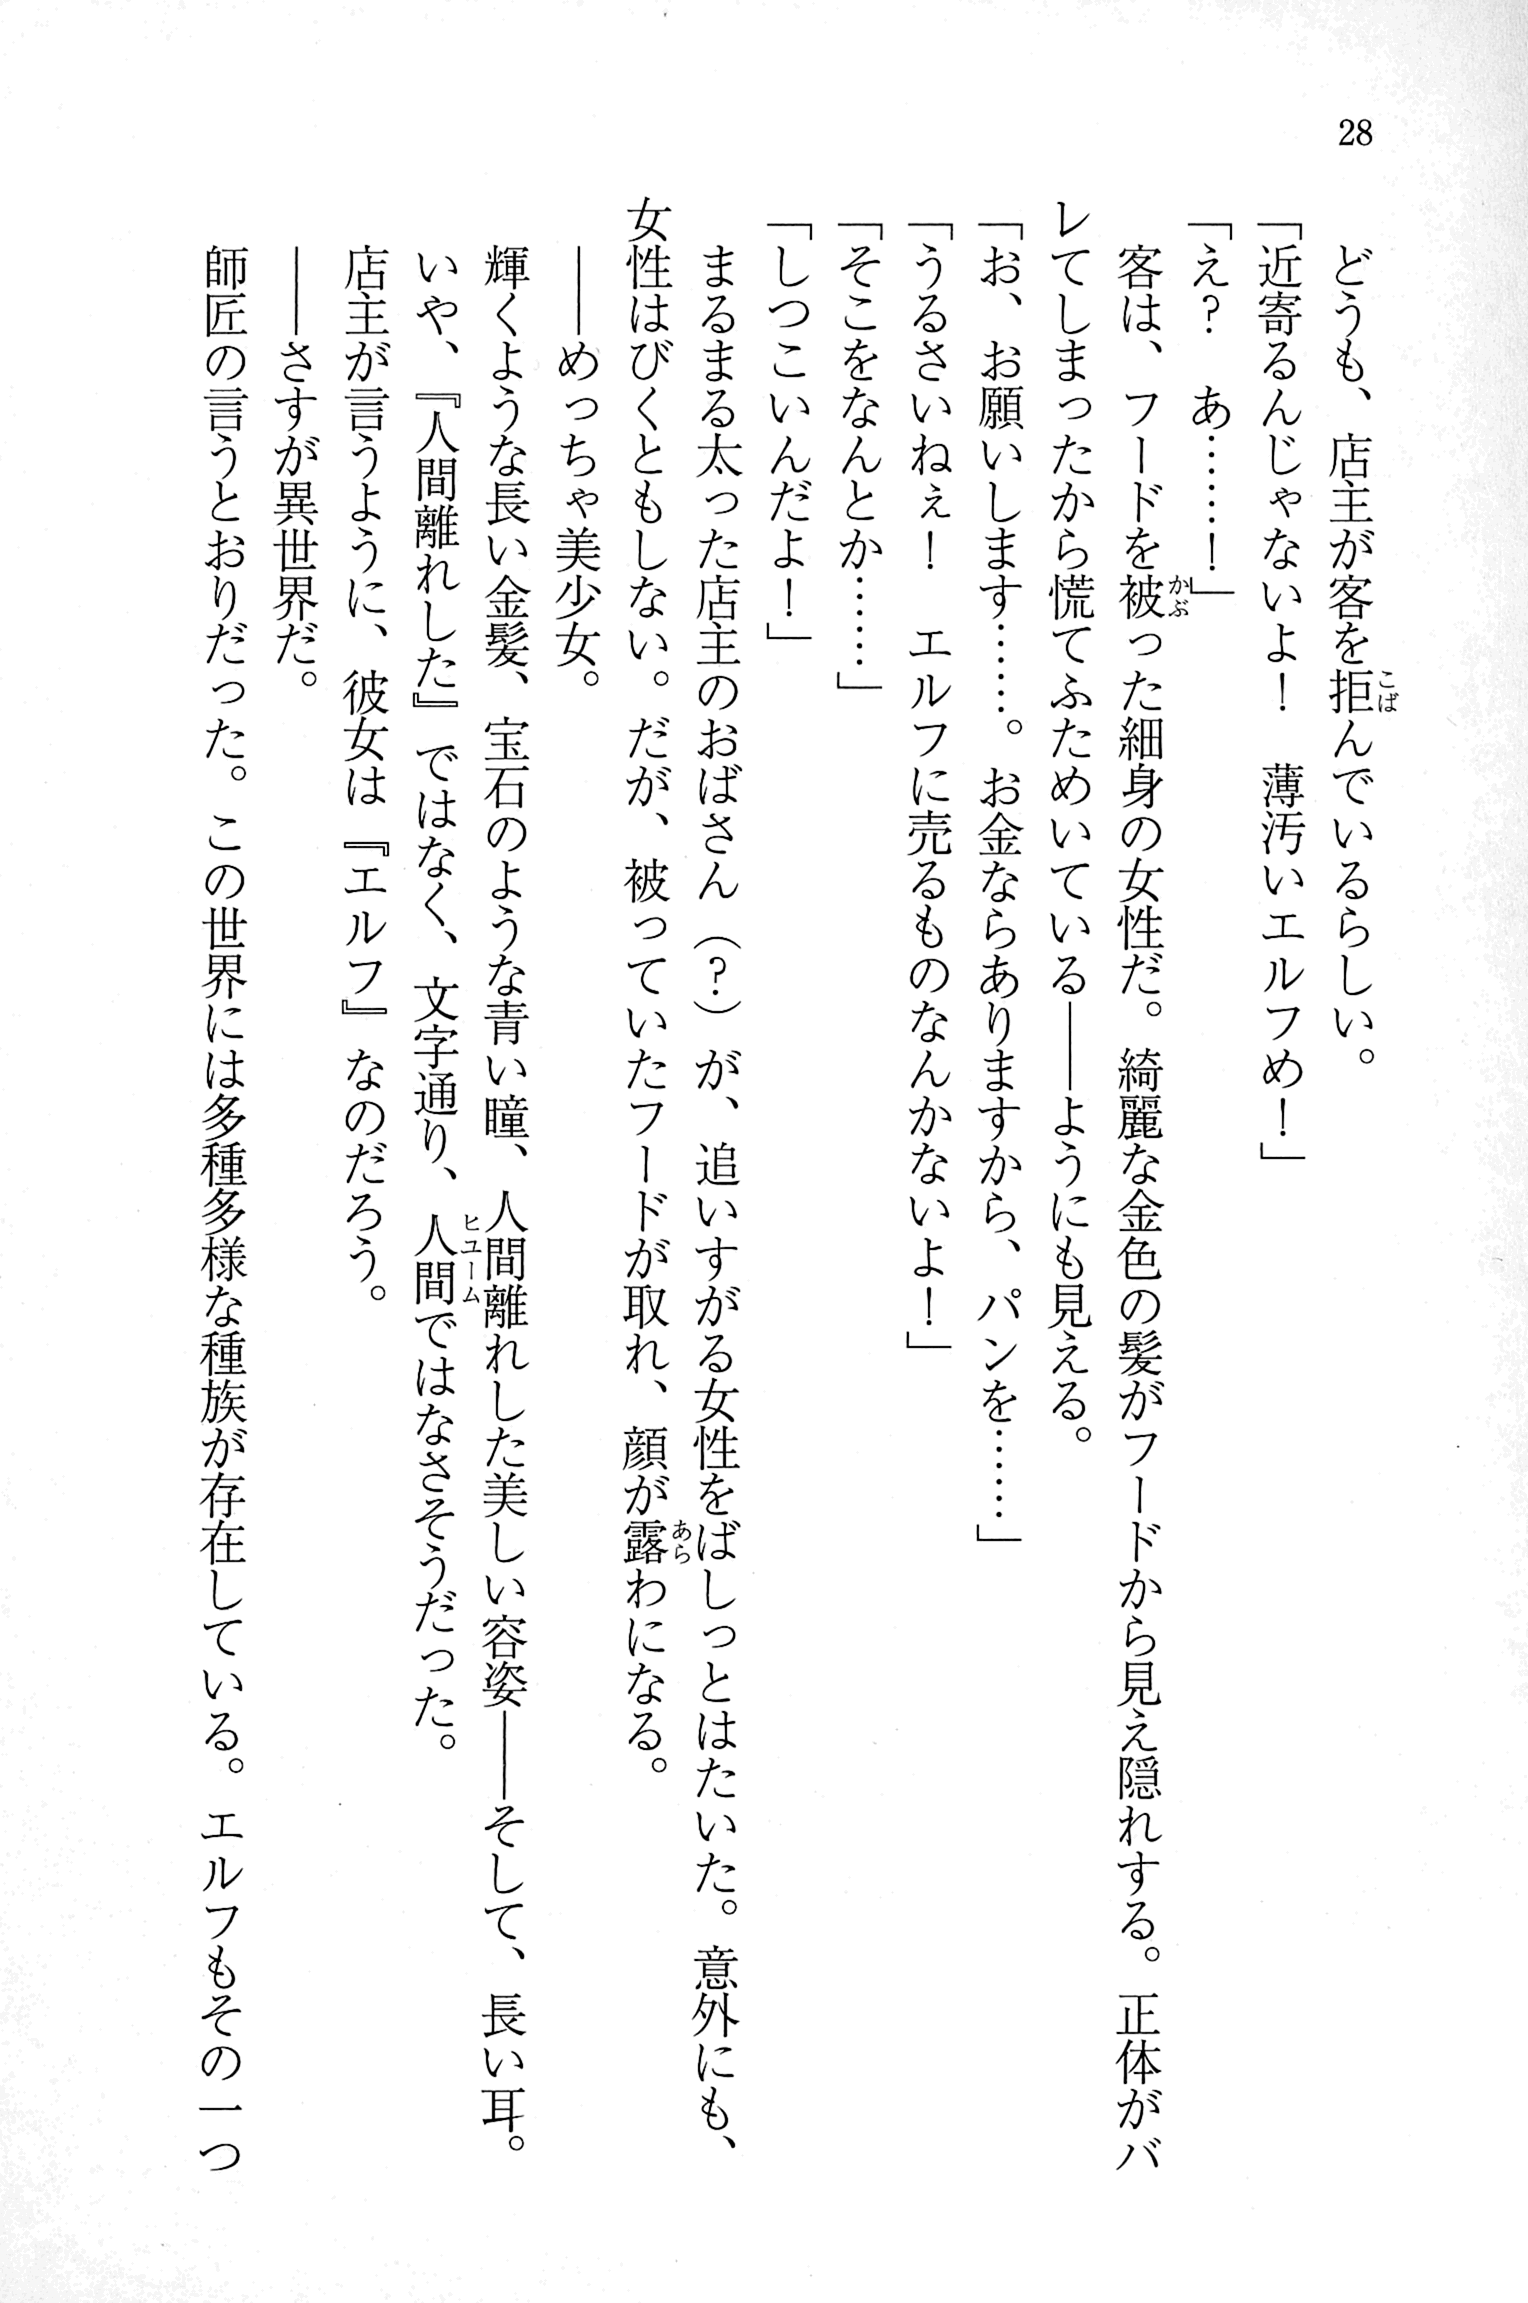 28
どうも、店主が客を拒んでいるらしい。
「近寄るんじゃないよ！　薄汚いエルフめ！」
「え？　あ……！」
客は、フードを被った細身の女性だ。綺麗な金色の髪がフードから見え隠れする。正体がバ
レてしまったから慌てふためいている――ようにも見える。
「お、お願いします……。お金ならありますから、パンを……」
「うるさいねぇ！　エルフに売るものなんかないよ！」
「そこをなんとか……」
「しつこいんだよ！」
まるまる太った店主のおばさん（？）が、追いすがる女性をばしっとはたいた。意外にも、
女性はびくともしない。だが、被っていたフードが取れ、顔が露わになる。
――めっちゃ美少女。
輝くような長い金髪、宝石のような青い瞳、人間離れした美しい容姿――そして、長い耳。
いや、『人間離れした』ではなく、文字通り、人間ではなさそうだった。
店主が言うように、彼女は『エルフ』なのだろう。
――さすが異世界だ。
師匠の言うとおりだった。この世界には多種多様な種族が存在している。エルフもその一つ
こば
かぶ
あら
ヒューム